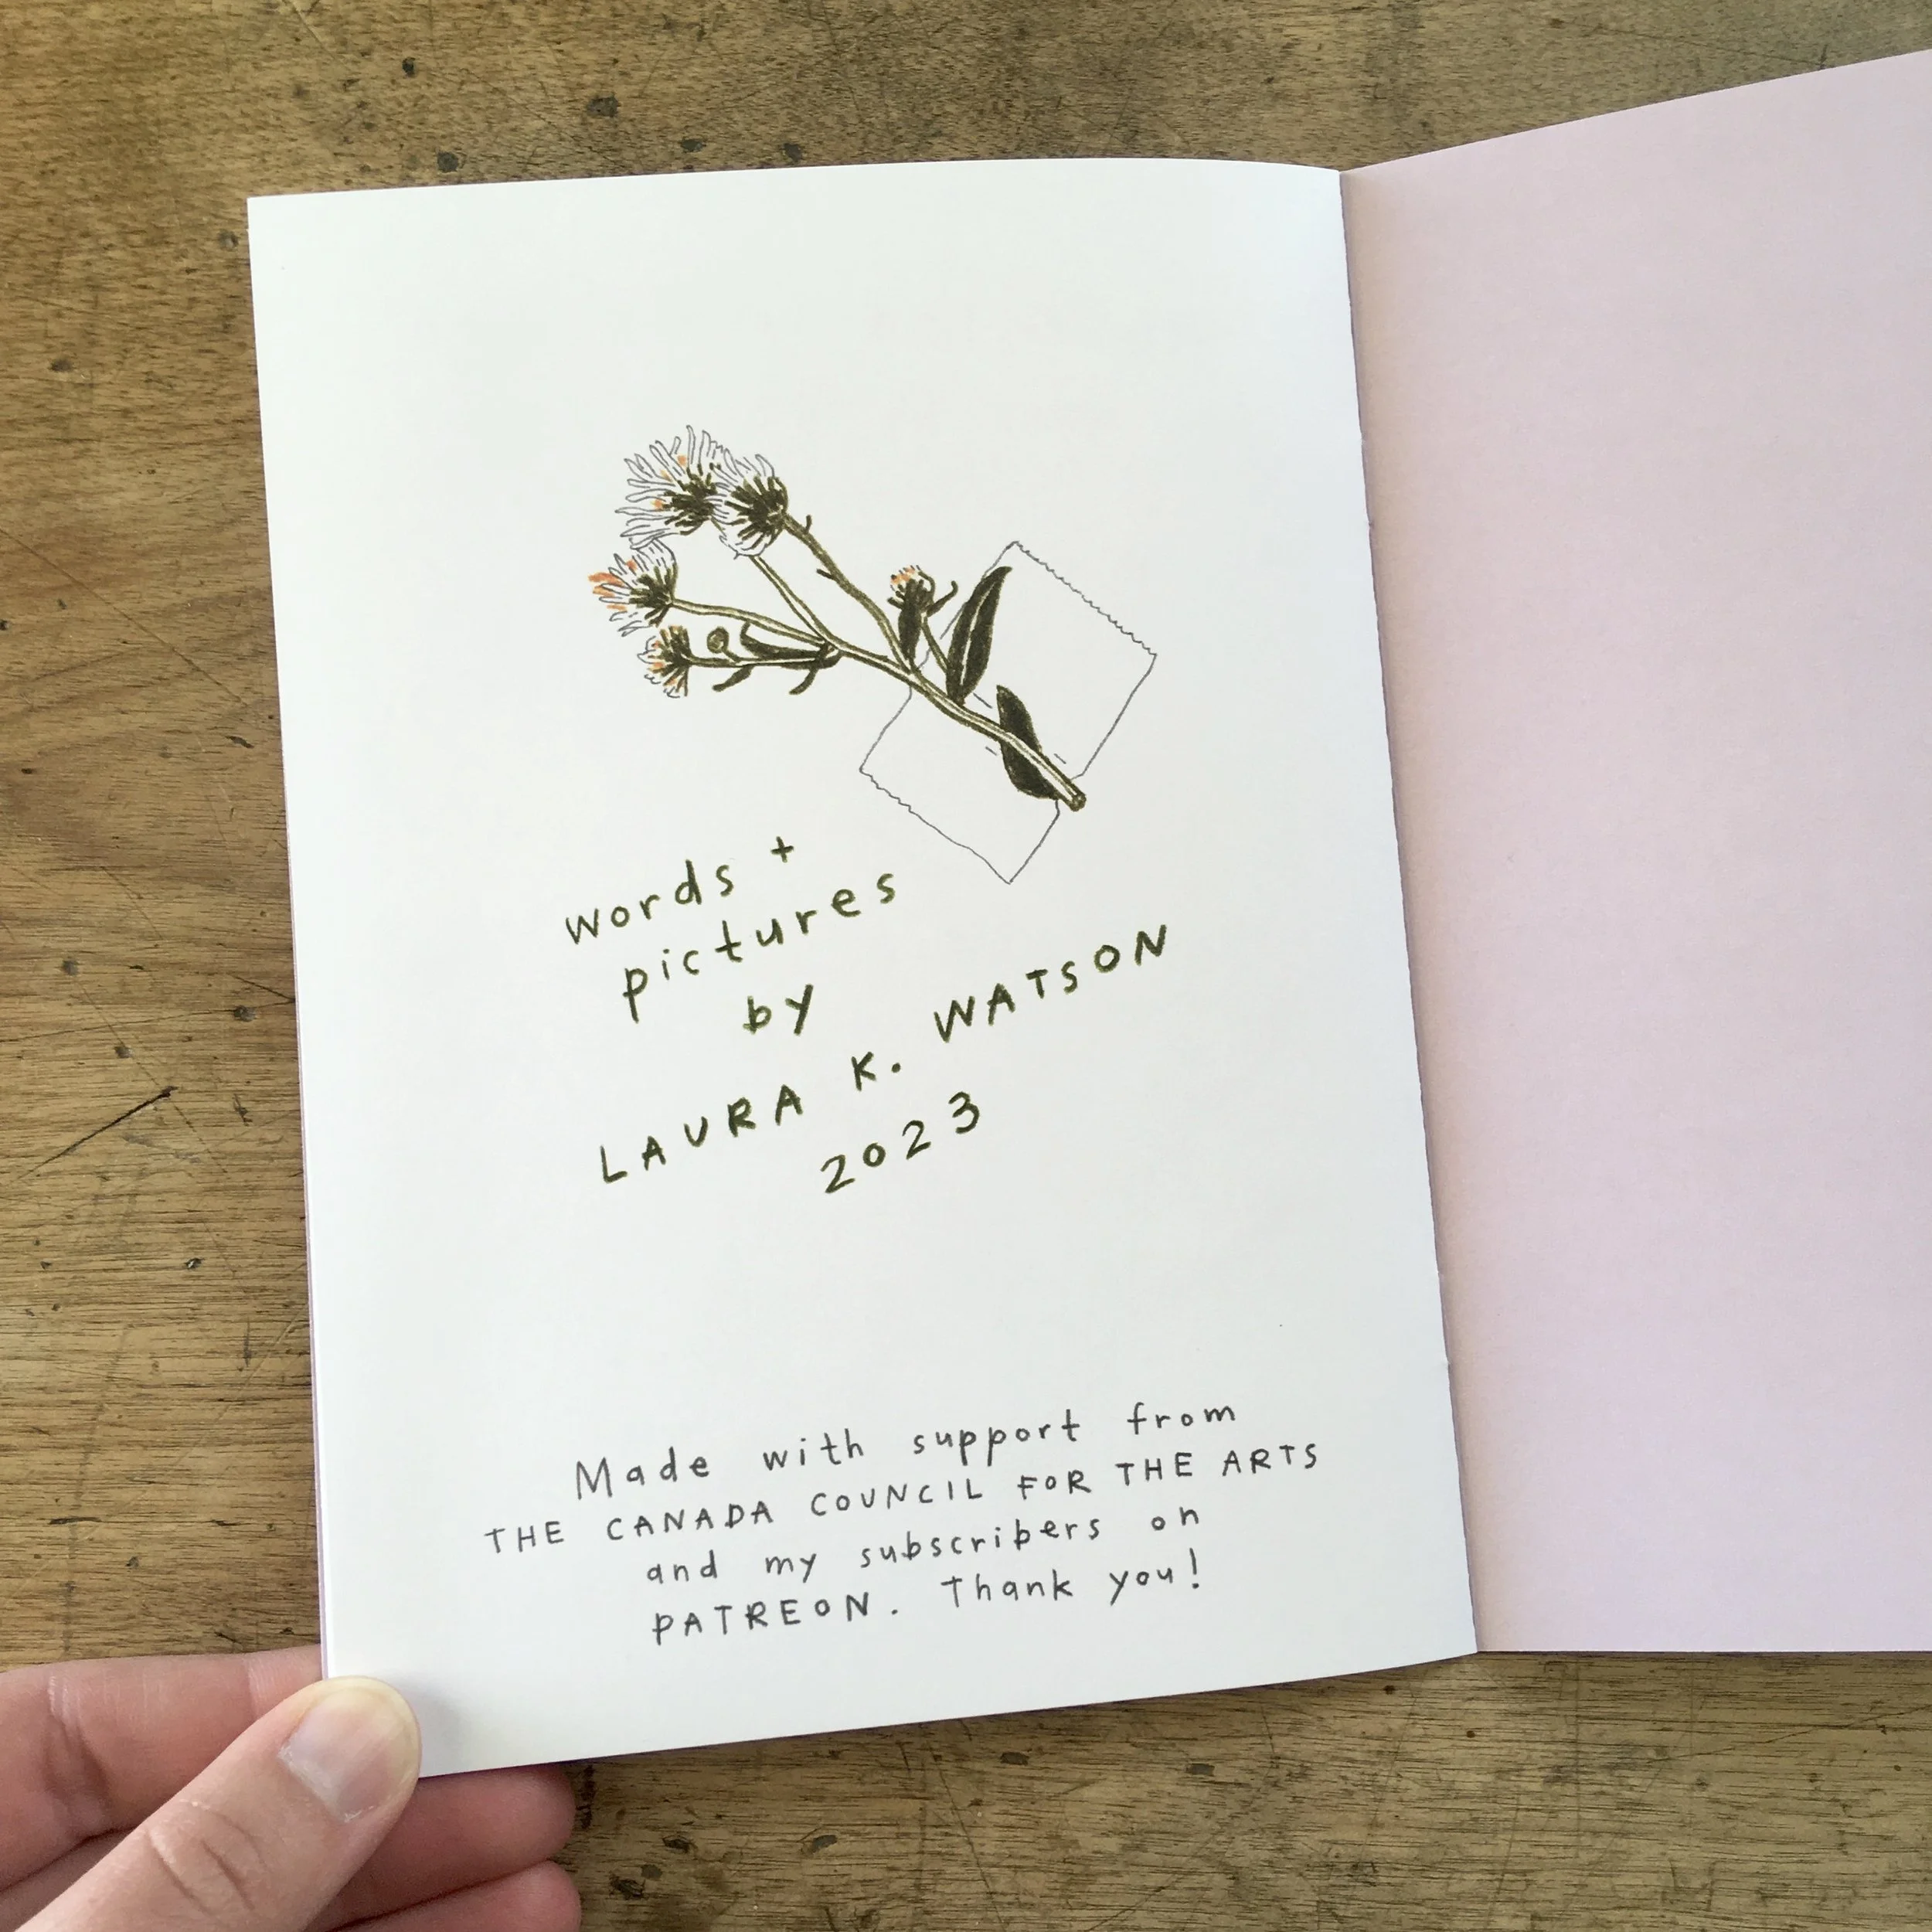 words +
pictures
by
LAURA K. WATSON
2023
Made with support from
THE CANADA COUNCIL FOR THE ARTS
and my subscribers on
PATREON. Thank you!